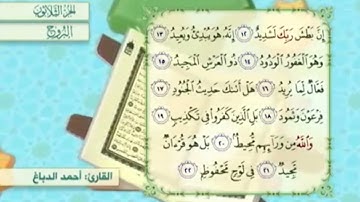 الجزء الثلاثون
البروج
إِنَّ بَطْشَ رَبِّكَ لَشَدِيدٌ ١٢ إِنَّهُ هُوَ يُبْدِئُ وَيُعِيدُ ١٣
وَهُوَ الْغَفُورُ الْوَدُودُ ١٤ ذُو الْعَرْشِ الْمَجِيدُ ١٥
فَعَّالٌ لِمَا يُرِيدُ ١٦ هَلْ أَتَىٰكَ حَدِيثُ الْجُنُودِ ١٧
فِرْعَوْنَ وَثَمُودَ ١٨ بَلِ الَّذِينَ كَفَرُوا فِي تَكْذِيبٍ ١٩
وَاللَّهُ مِن وَرَائِهِم مُّحِيطٌ ٢٠ بَلْ هُوَ قُرْءَانٌ
مَّجِيدٌ ٢١ فِي لَوْحٍ مَّحْفُوظٍ ٢٢
القارئ: أحمد الدباغ